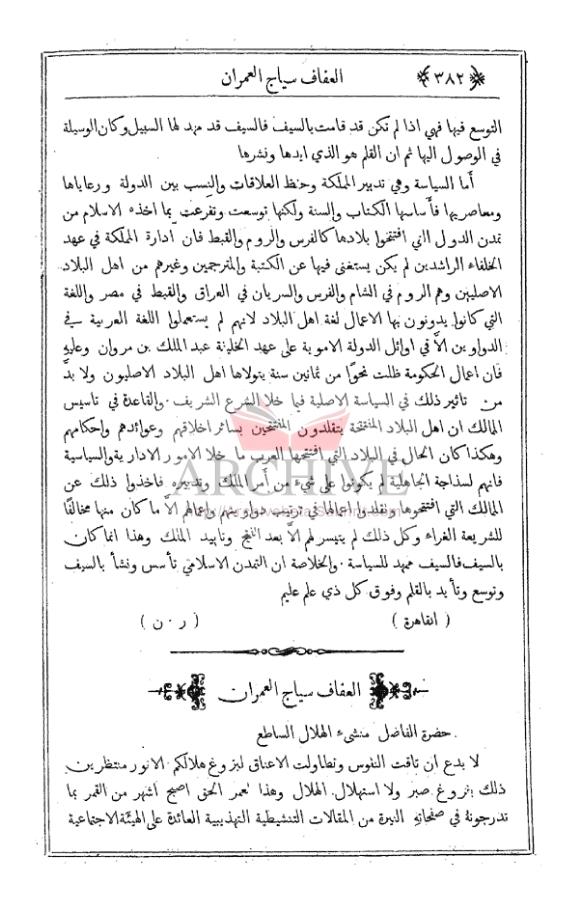 ﴿٣٨٢﴾ العفاف سياج العمران
التوسع فيها فهي اذا لم تكن قد قامت بالسيف فالسيف قد مهد لها السبيل وكان الوسيلة
في الوصول اليها ثم ان القلم هو الذي ايدها ونشرها
أما السياسة وهي تدبير المملكة وحفظ العلاقات والنسب بين الدولة ورعاياها
ومعاصريها فأساسها الكتاب والسنة ولكنها توسعت وتفرعت بما اخذه الاسلام من
تمدن الدول التي افتتحوا بلادها كالفرس والروم والقبط فان ادارة المملكة في عهد
الخلفاء الراشدين لم يكن يستغنى فيها عن الكتبة والمترجمين وغيرهم من اهل البلاد
الاصليين وهم الروم في الشام والفرس والسريان في العراق والقبط في مصر واللغة
التي كانوا يدونون بها الاعمال لغة اهل البلاد لانهم لم يستعملوا اللغة العربية في
الدواوين الاَّ في اوائل الدولة الاموية على عهد الخليفة عبد الملك بن مروان وعليهِ
فان اعمال الحكومة ظلت نحوًا من ثمانين سنة يتولاها اهل البلاد الاصليون ولا بدَّ
من تاثير ذلك في السياسة الاصلية فيما خلا الشرع الشريف. والقاعدة في تاسيس
الممالك ان اهل البلاد المفتتحة يتقلدون المفتتحين بسائر اخلاقهم وعوائدهم واحكامهم
وهكذا كان الحال في البلاد التي افتتحها العرب ما خلا الامور الادارية والسياسية
فانهم لسذاجة الجاهلية لم يكونوا على شيء من أمر الملك وتدبيره فاخذوا ذلك عن
الممالك التي افتتحوها وتقلدوا اعمالها في ترتيب دواوينهم واعمالهم الاَّ ما كان منها مخالفًا
للشريعة الغراء وكل ذلك لم يتيسر لهم الاَّ بعد الفتح وتاييد الملك وهذا انما كان
بالسيف فالسيف ممهد للسياسة. والخلاصة ان التمدن الاسلامي تأسس ونشأ بالسيف
وتوسع وتأيد بالقلم وفوق كل ذي علم عليم
( القاهرة ) ( ر . ن )
العفاف سياج العمران
حضرة الفاضل منشىء الهلال الساطع
لا بدع ان تاقت النفوس وتطاولت الاعناق لبزوغ هلالكم الانور منتظرين
ذلك بفروغ صبر ولا استهلال الهلال وهذا لعمر الحق اصبح اشهر من القمر بما
تدرجونهُ في صفحاتهِ النيرة من المقالات التنشيطية التهذيبية العائدة على الهيئة الاجتماعية
ARCHIVE